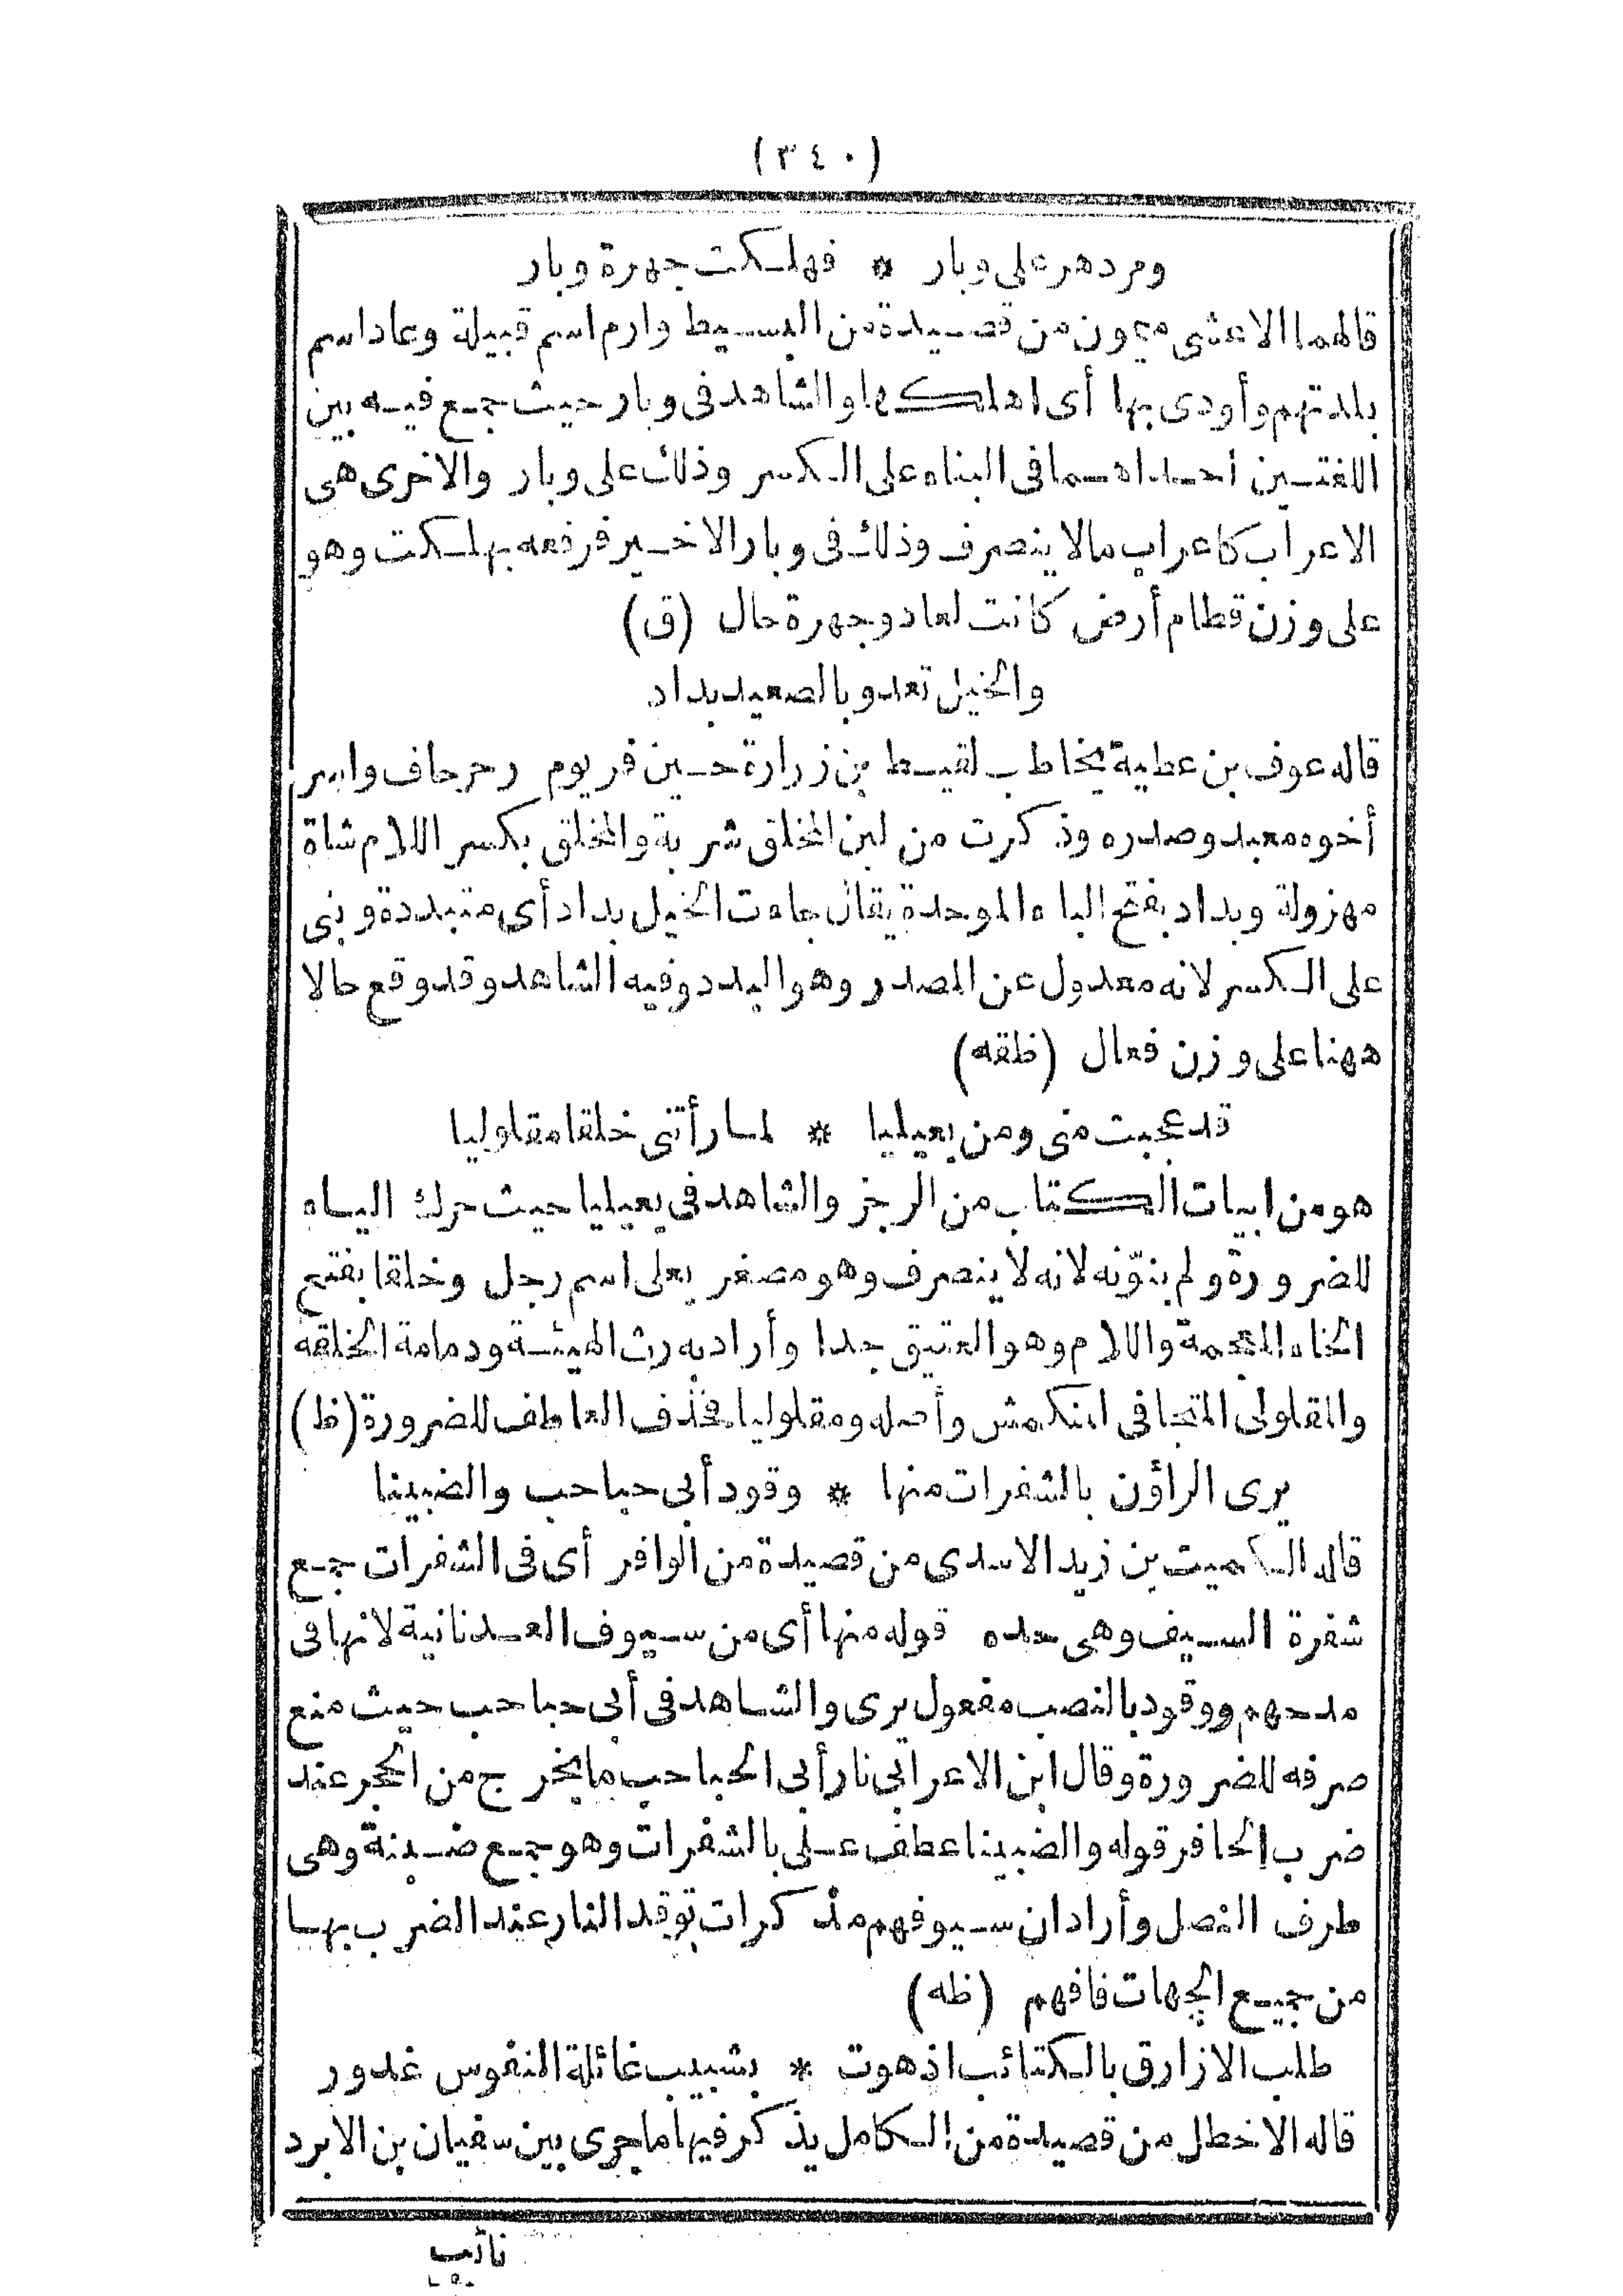 (٣٤٠)
ومر دهر على وبار * فهلكت جهرة وبار
قالهما الاعشى ميمون من قصيدة من البسيط وارم اسم قبيلة وعاد اسم
بلدتهم وأودى بها أى اهلكها والشاهد فى وبار حيث جمع فيه بين
اللغتين احداهما فى البناء على الكسر وذلك على وبار والاخرى هى
الاعراب كاعراب مالا ينصرف وذلك فى وبار الاخير فرفعه بهلكت وهو
على وزن قطام أرض كانت لعاد وجهرة حال (ق)
والخيل تعدو بالصعيد بداد
قاله عوف بن عطية يخاطب لقيط بن زرارة حين فر يوم رحرحاف واسر
أخوه معبد وصدره وذكرت من لبن المحلق شربة والمحلق بكسر اللام شاة
مهزولة وبداد بفتح الباء الموحدة يقال جاءت الخيل بداد أى متبددة وبنى
على الكسر لانه معدول عن المصدر وهو البدد وفيه الشاهد وقد وقع حالا
ههنا على وزن فعال (ظقه)
قد عجبت منى ومن يعيليا * لما رأتنى خلقا مقلوليا
هو من ابيات الكتاب من الرجز والشاهد فى يعيليا حيث حرك الياء
للضرورة ولم ينوّنه لانه لا ينصرف وهو مصغر يعلى اسم رجل وخلقا بفتح
الخاء المعجمة واللام وهو العتيق جدا وأراد به رث الهيئة ودمامة الخلقه
والمقلولى المتجافى المنكمش وأصله ومقلوليا فحذف العاطف للضرورة (ظ)
يرى الراؤن بالشفرات منها * وقود أبى حباحب والضبينا
قاله الكميت بن زيد الاسدى من قصيدة من الوافر أى فى الشفرات جمع
شفرة السيف وهى حده قوله منها أى من سيوف العدنانية لانها فى
مدحهم ووقود بالنصب مفعول يرى والشاهد فى أبى حباحب حيث منع
صرفه للضرورة وقال ابن الاعرابى نار أبى الحباحب ما يخرج من الحجر عند
ضرب الحافر قوله والضبينا عطف على بالشفرات وهو جمع ضبينة وهى
طرف النصل وأراد ان سيوفهم مذكرات توقد النار عند الضرب بها
من جميع الجهات فافهم (ظه)
طلب الازارق بالكتائب اذ هوت * بشبيب غائلة النفوس غدور
قاله الاخطل من قصيدة من الكامل يذكر فيها ما جرى بين سفيان بن الابرد
نائب